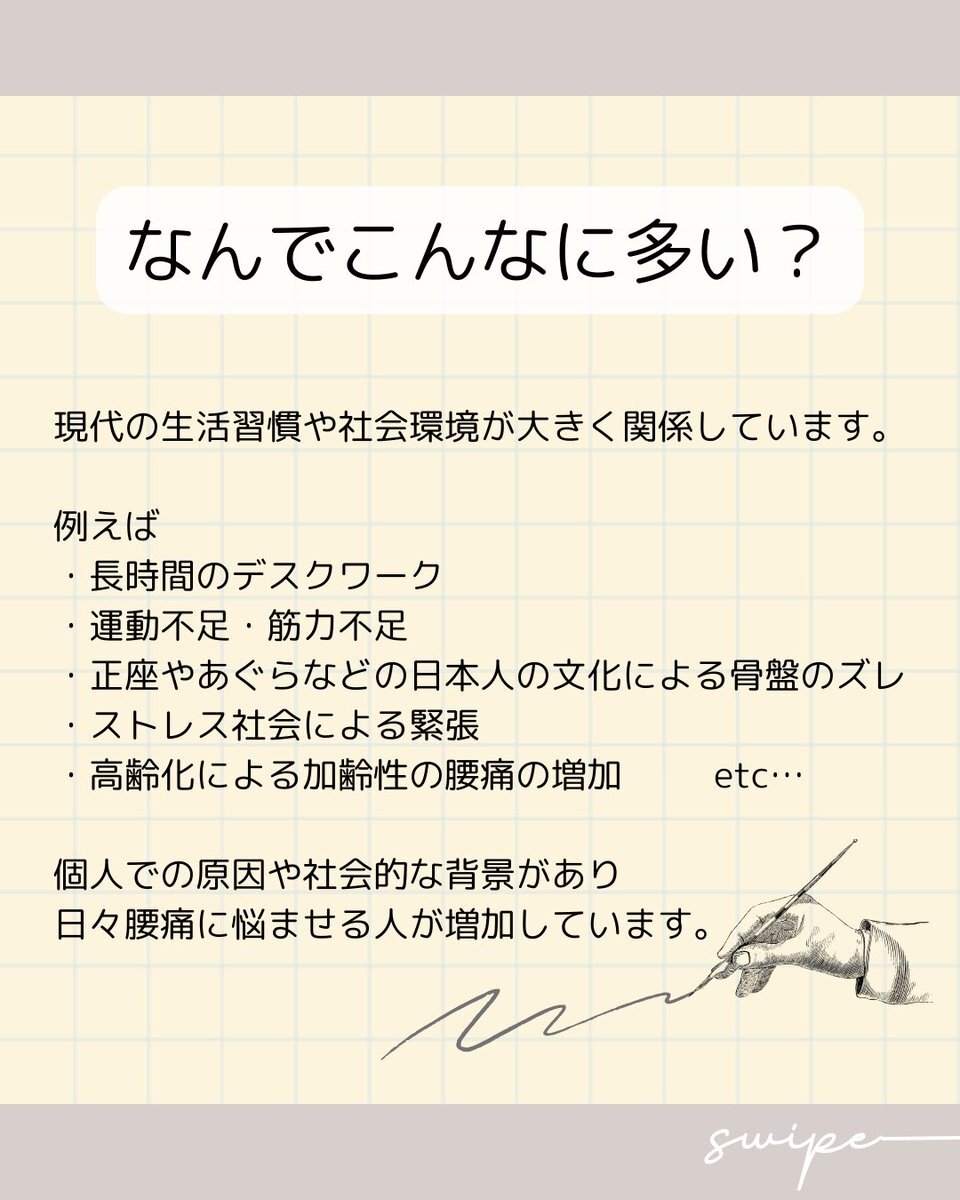 なんでこんなに多い？
現代の生活習慣や社会環境が大きく関係しています。
例えば
・長時間のデスクワーク
・運動不足・筋力不足
・正座やあぐらなどの日本人の文化による骨盤のズレ
・ストレス社会による緊張
・高齢化による加齢性の腰痛の増加　　etc…
個人での原因や社会的な背景があり
日々腰痛に悩ませる人が増加しています。
swipe